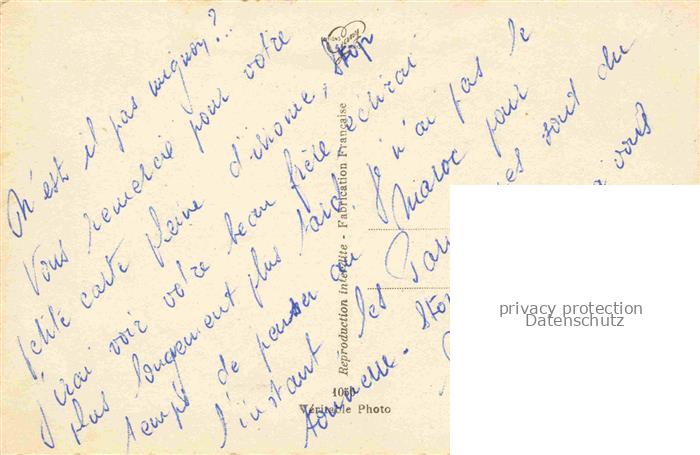 N'est il pas mignon?...
Vous remercie pour votre
petite carte pleine d'ironie, stop
j'irai voir votre beau frère écrirai
plus longuement plus tard. Je n'ai pas le
temps de penser au Maroc pour
l'instant les Par es sont du
tonnerre - Stop à vous
Reproduction interdite - Fabrication Française
105
Véritable Photo
privacy protection
Datenschutz